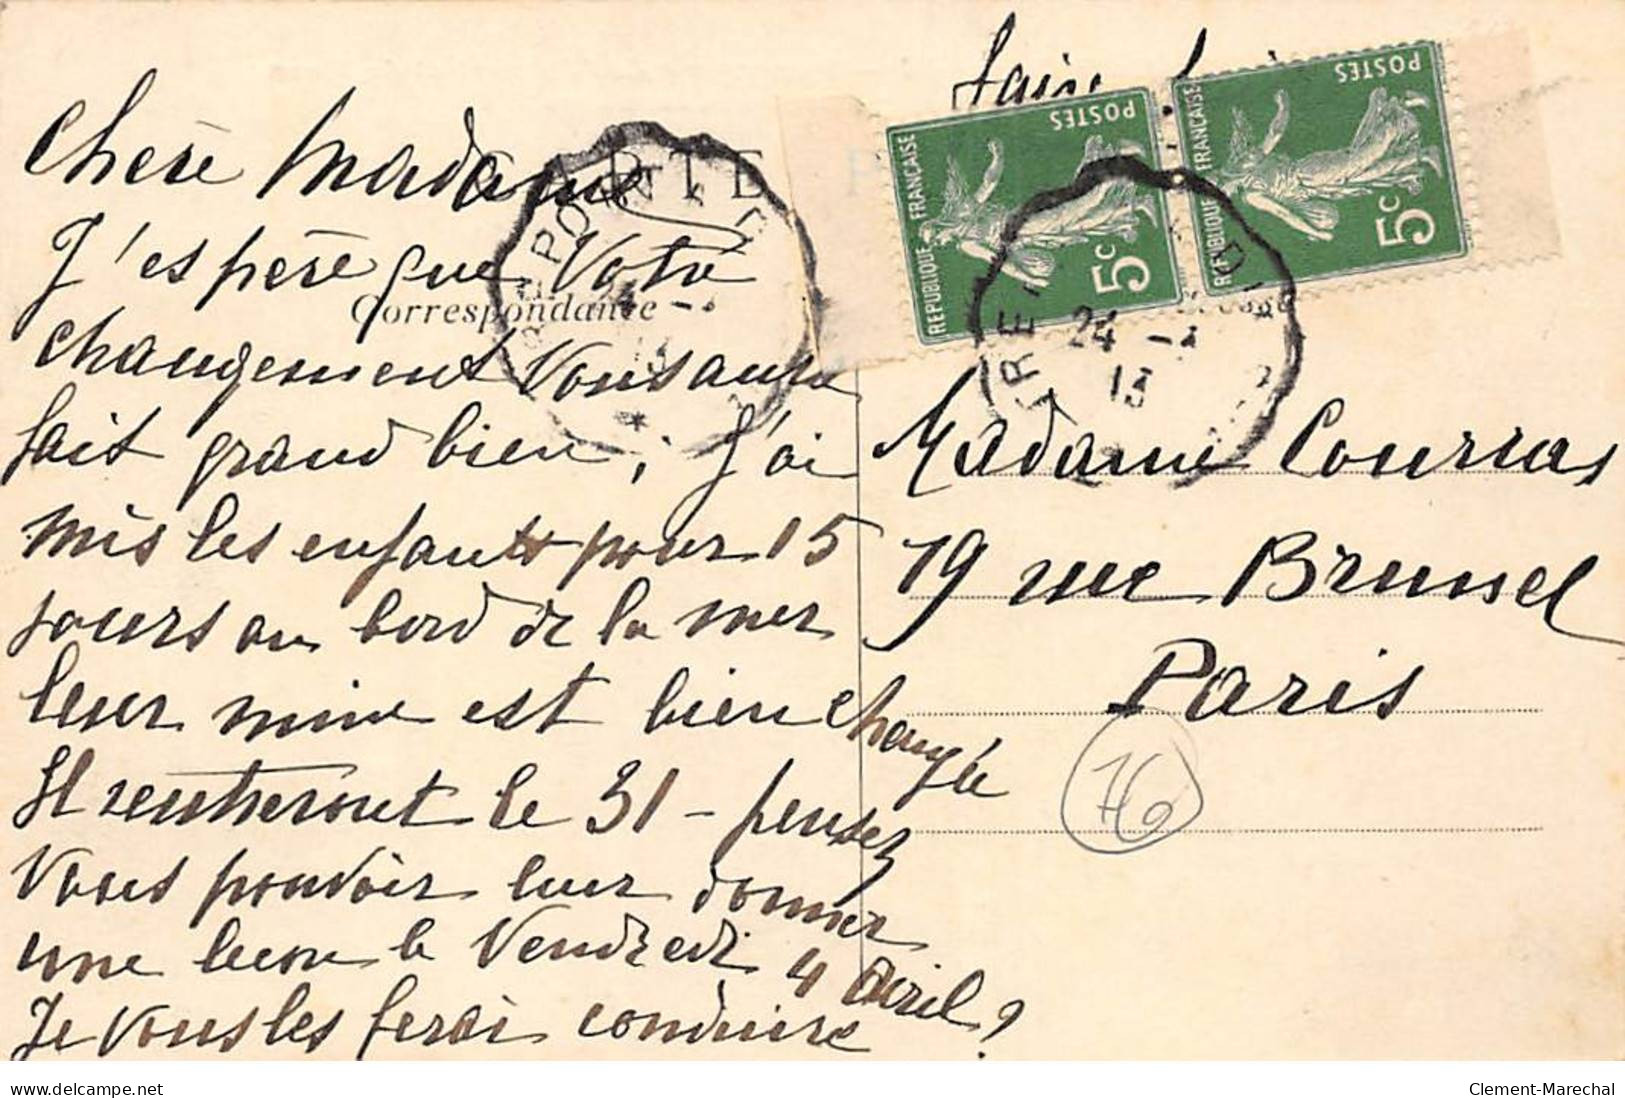 Chère Madame
J'espère que Votre
changement Vous aura
fait grand bien; J'ai
mis les enfants pour 15
jours au bord de la mer
leur mine est bien changée
Il rentreront le 31 - pensez
Vous pouvoir leur donner
une lecon le Vendredi 4 avril?
Je Vous les ferai conduire
faire
CARTE P
Correspondance
REPUBLIQUE FRANÇAISE
POSTES
5c
REPUBLIQUE FRANÇAISE
POSTES
5c
24
13
24
13
Madame Courras
19 rue Brussel
Paris
76
www.delcampe.net
Clement-Marechal